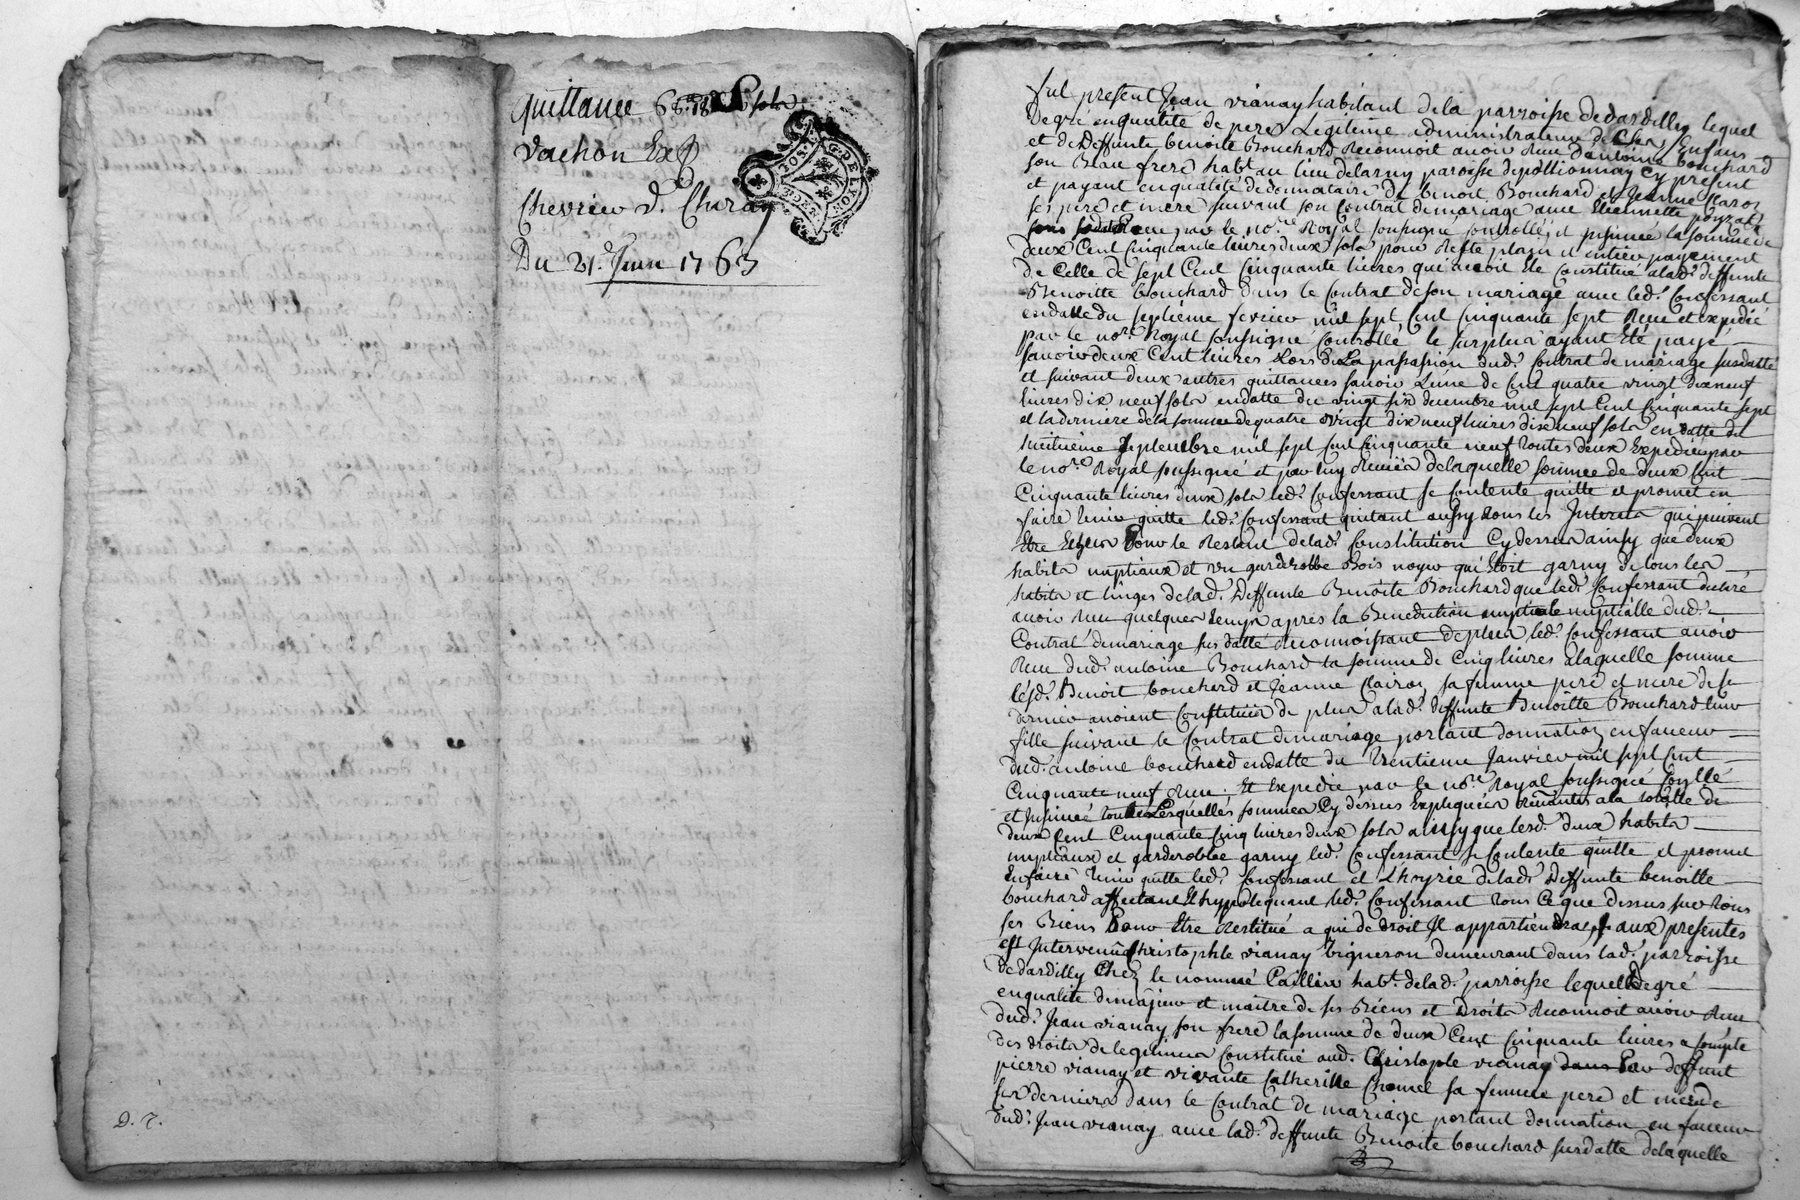 quittance
vachon Exp
Chevrier d. Chiray
Du 21. Juin 1763
D. 7.
fut present Jean vianay habitant dela parroisse Dedardilly lequel
Degré enqualité de pere Legitime administrateur de ses Enfans
et de Deffunte benoite Bouchard Reconnoit avoir Reçu d'antoine bouchard
son Beau frere habt au lieu delarny paroisse depollionnay Cy present
et payant enqualité dedonnataire de benoit Bouchard et Jeanne Clairon
ses pere et mere suivant son Contrat demariage avec Etiennette
Reçu par le nore Royal soussigné controllé, et insinué la somme de
deux Cent Cinquante livres deux sols pour Reste plain et entier payement
de Celle de sept Cent Cinquante livres qui avoit Eté Constitué alade deffunte
Benoitte bouchard dans le Contrat deson mariage avec led. Confessant
endatte du septieme fevrier mil sept Cent Cinquante sept Reçu et expedié
par le nore Royal soussigné Controllé le surplus ayant Eté payé
savoir deux Cent livres Lors De La passassion dud. Contrat de mariage susdatté
et suivant deux autres quittances savoir Lune de Cent quatre vingt dixneuf
livres dix neuf sols endatte du vingt six decembre mil sept Cent Cinquante sept
et laderniere dela somme dequatre vingt dix neuf livres dixneuf sols en datte du
huitieme septembre mil sept Cent Cinquante neuf toutes deux Expediées par
le nore Royal soussigné et par luy Reçues delaquelle somme de deux Cent
Cinquante livres deux sols led. Confessant se Contente quitte et promet en
faire tenir quitte led. Confessant quitant aussy tous les Interets qui puivent
Etre Echus Pour le Restant delad. Constitution Cy dessus ainsy que deux
habits nuptiaux et un garderobbe Bois noyer qui Etoit garny de tous les
habits et linges delad. Deffunte Benoite Bouchard que led. Confessant declaré
avoir Reçu quelques tems après la Benediction nuptiale nuptialle dud.
Contrat demariage sus datté Reconnoissant deplus led. Confessant avoir
Reçu dud. antoine Bouchard la somme de Cinq livres alaquelle somme
lesd. Benoit bouchard et Jeanne Clairon sa femme pere et mere de ce
dernier avoient Constitués de plus alad. deffunte Benoitte Bouchard leur
fille suivant le Contrat demariage portant donnation en faveur
dud. antoine bouchard endatte du trentieme Janvier mil sept Cent
Cinquante neuf Reçu. Et Expedié par le nore Royal soussigné
et Insinué toutes Lesquelles sommes Cy dessus Expliquées Revenantes ala totalle de
deux Cent Cinquante Cinq livres deux sols aussy que lesd. deux habits
nuptiaux et garderobbe garny led. Confessant se Contente quitte et promet
En faire tenir quitte led. Confessant et L'hoyrie delad. Deffunte benoitte
bouchard affectant Et hypotequant led. Confessant tous Ce que dessus sur tous
ses Biens Pour Etre Restitué a qui de droit Il appartiendra aux presentes
est Intervenu Christophle vianay Vigneron demeurant dans lad. parroisse
De dardilly Chez le nommé Paillier habt. delad. parroisse lequel Degré
enqualité demajeur et maitre de ses Biens et Droits Reconnoit avoir Reçu
dud. Jean vianay son frere la somme de deux Cent Cinquante livres a Compte
des droits delegitimes Constitué aud. Christophle vianay dans Par deffunt
pierre vianay et vivante Catherine Chomel sa femme pere et mere de
Ces derniers dans le Contrat de mariage portant donnation en faveur
dud. Jean vianay avec lad. deffunte Benoite bouchard susdatte delaquelle